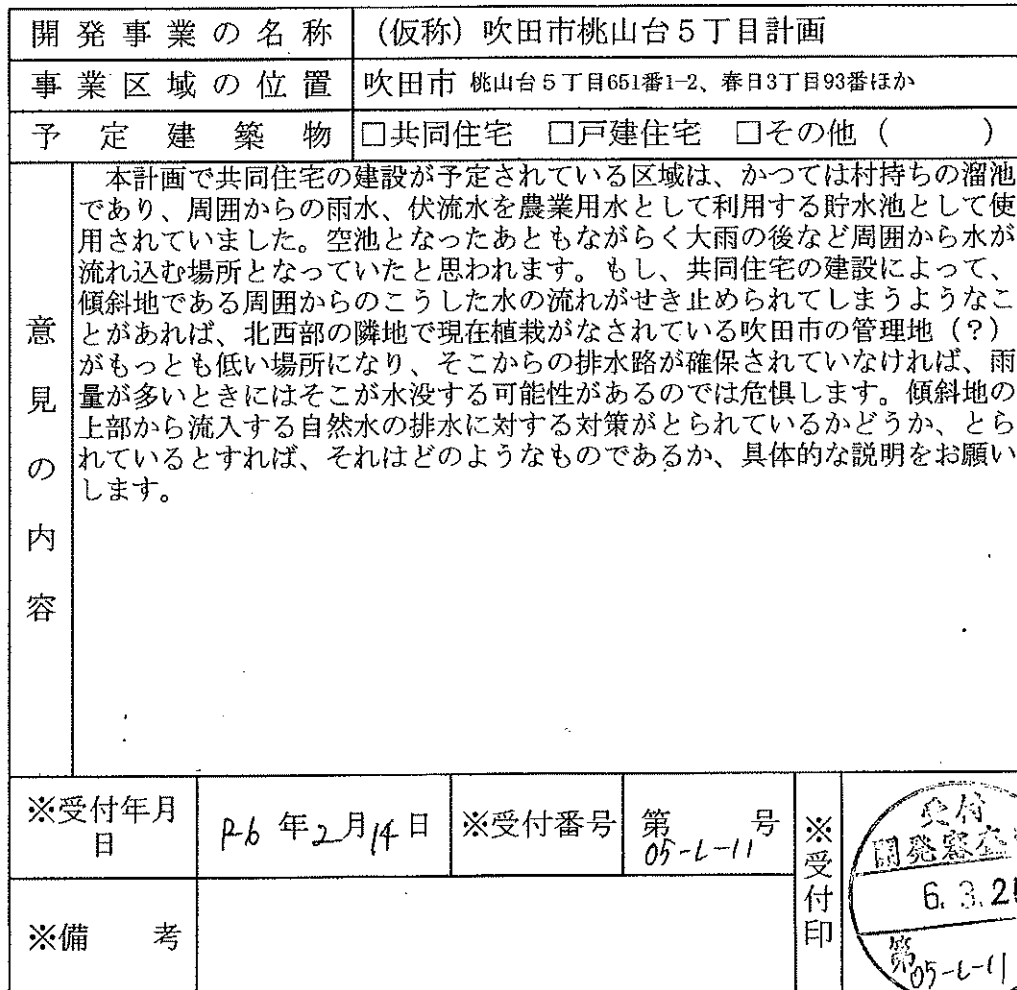 開発事業の名称 (仮称)吹田市桃山台5丁目計画
事業区域の位置 吹田市 桃山台5丁目651番1-2、春日3丁目93番ほか
予定建築物 □共同住宅 □戸建住宅 □その他( )
意見の内容
本計画で共同住宅の建設が予定されている区域は、かつては村持ちの溜池
であり、周囲からの雨水、伏流水を農業用水として利用する貯水池として使
用されていました。空池となったあともながらく大雨の後など周囲から水が
流れ込む場所となっていたと思われます。もし、共同住宅の建設によって、
傾斜地である周囲からのこうした水の流れがせき止められてしまうようなこ
とがあれば、北西部の隣地で現在植栽がなされている吹田市の管理地(?)
がもっとも低い場所になり、そこからの排水路が確保されていなければ、雨
量が多いときにはそこが水没する可能性があるのでは危惧します。傾斜地の
上部から流入する自然水の排水に対する対策がとられているかどうか、とら
れているとすれば、それはどのようなものであるか、具体的な説明をお願い
します。
※受付年月日 R6年2月14日 ※受付番号 第05-L-11号 ※受付印
受付
開発審査
6.3.2
第05-L-11
※備考